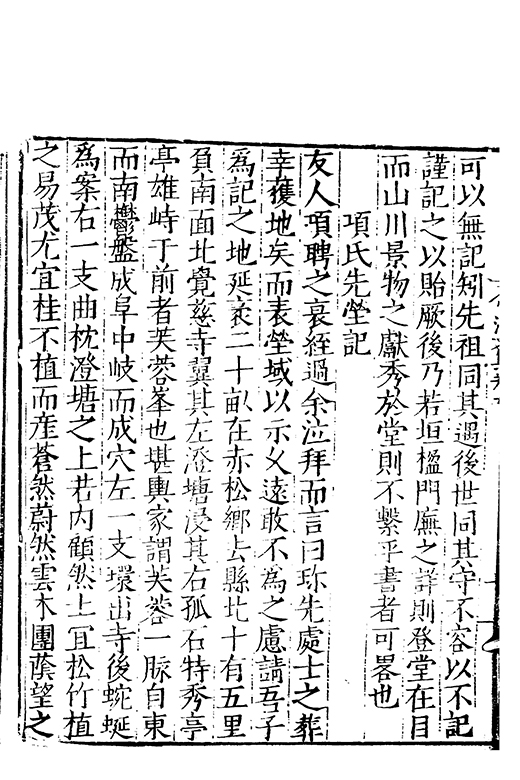 可以無記矧先祖同其遇後世同其守不容以不記
謹記之以貽厥後乃若垣楹門廡之詳則登堂在目
而山川景物之獻秀於堂則不繫乎書者可畧也
項氏先塋記
友人項聘之衰絰過余泣拜而言曰珎先處士之葬
幸獲地矣而表塋域以示乆遠敢不為之慮請吾子
為記之地延袤二十畝在赤松鄉去縣北十有五里
負南面北覺慈寺翼其左澄塘浸其右孤石特秀亭
亭雄峙于前者芙蓉峯也堪輿家謂芙蓉一脉自東
而南鬱盤成阜中岐而成穴左一支環出寺後蜿蜒
為案右一支曲枕澄塘之上若内顧然土宜松竹植
之易茂尤宜桂不植而産蒼然蔚然雲木團蔭望之